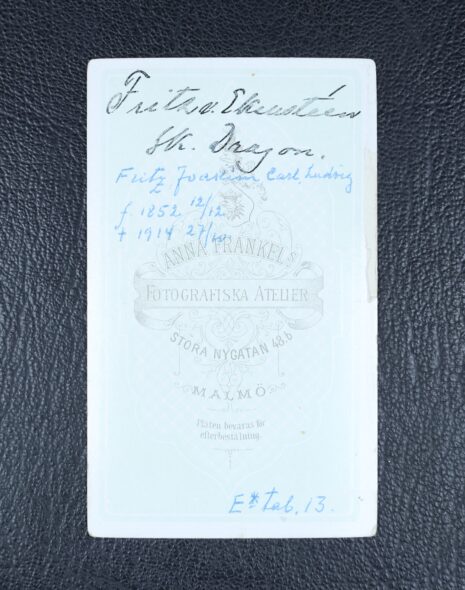 Fritz v. Ekensteen
Sk. Dragon.
Fritz Joachim Carl Ludvig
f. 1852 12/12
† 1914 27/10
ANNA FRANKELS
FOTOGRAFISKA ATELIER
STORA NYGATAN 48,6
MALMÖ
Plåten bevaras för
efterbeställning.
tab. 13.